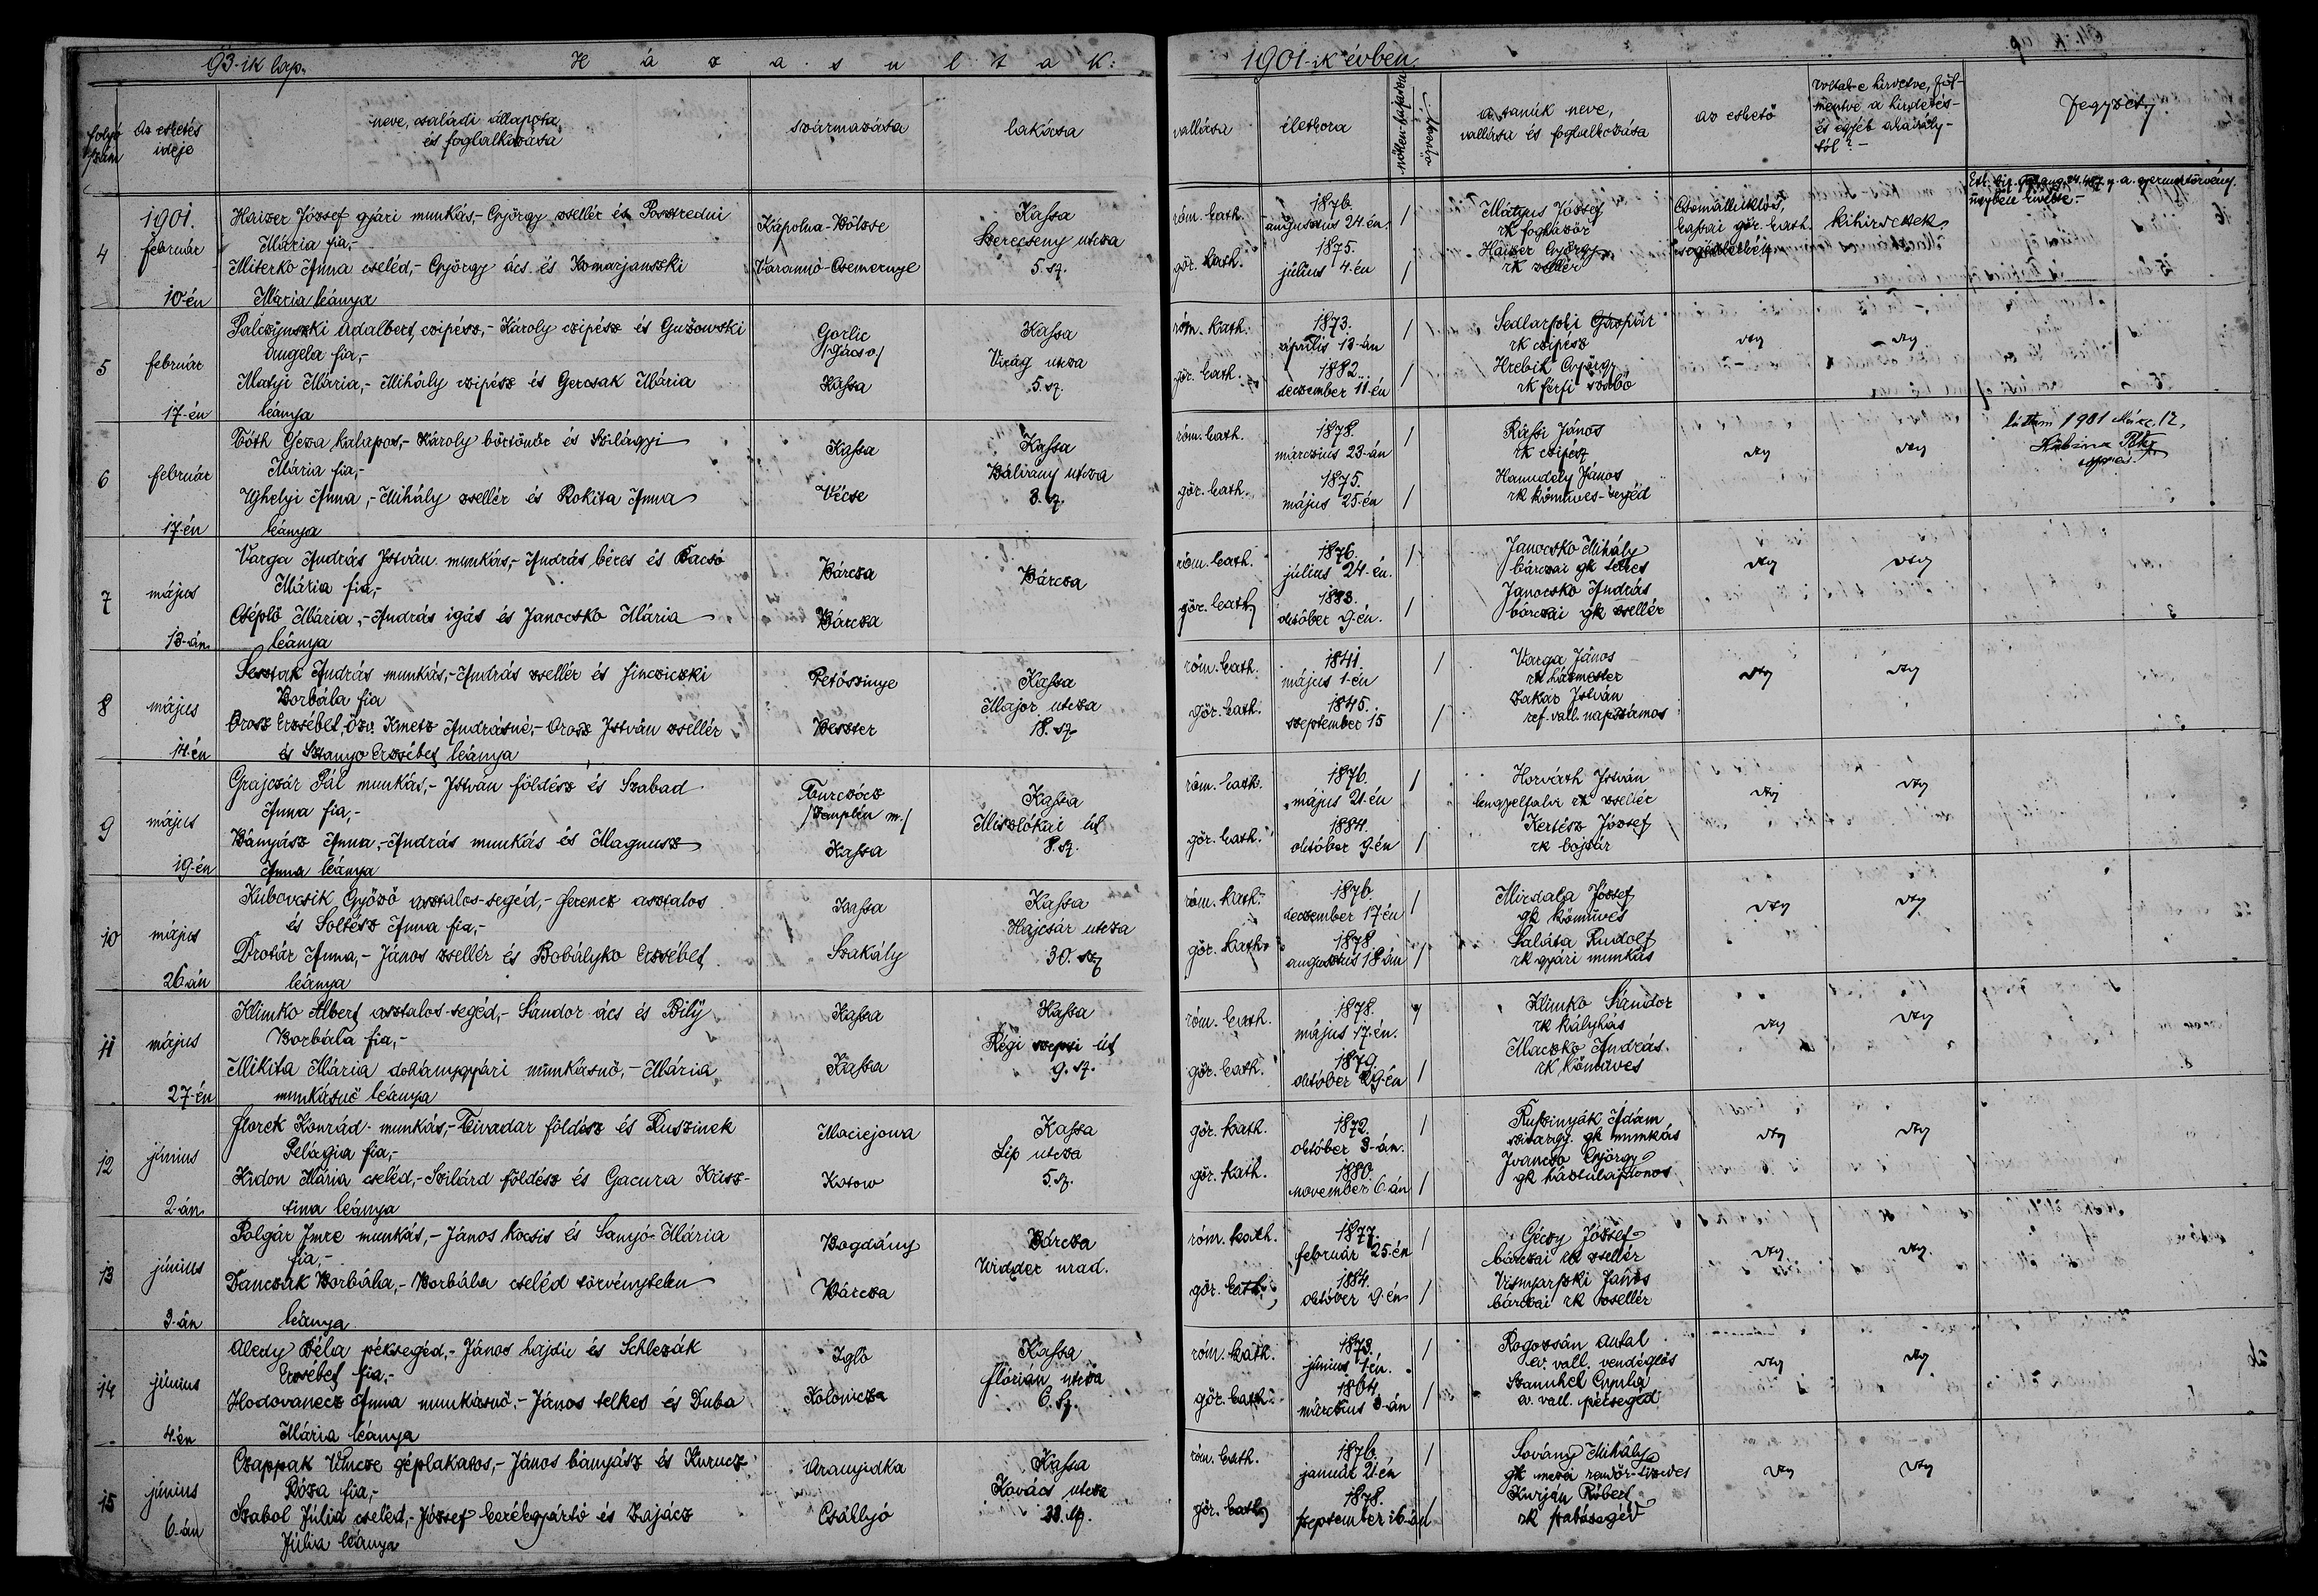 93-ik lap. Házasultak: 1901-ik évben
folyó szám
az esketés ideje
neve, családi állapota, és foglalkozása
származása
lakása
vallása
életkora
nőtlen-hajadon
özvegy
a tanúk neve, vallása és foglalkozása
az eskető
Voltak-e hirdetve, fölmentve a hirdetés- és egyéb akadálytól? -
Jegyzet
4
1901. február 10-én
Haizer József gyári munkás,- György zsellér és
Mária fia,-
Miterko Anna cseléd,- György ács és Komarjanszki
Mária leánya
Kápolna-Bölzse
Varannó-Csemernye
Kassa
Szerecseny utcza
5. sz.
róm. kath.
gör. kath.
1876.
augusztus 24-én.
1875.
július 4-én
Mátyus József
rk foglazár
Haizer György
rk zsellér
kassai gör. kath.
kihirdettek.
5
február 17-én
Palczynszki Adalbert, czipész,- Károly czipész és Guzowski
Angela fia,-
Matyi Mária,- Mihály czipész és Gercsak Mária
leánya
Gorlic
/Gácso./
Kassa
Kassa
Virág utcza
5. sz.
róm. kath.
gör. kath.
1873.
április 13-án
1882.
deczember 11-én
Sedlarszki Gáspár
rk czipész
Hrebik György
rk férfi szabó
"
"
6
február 17-én
Tóth Géza kalapos,- Károly börtönőr és Szilágyi
Mária fia,-
Ujhelyi Anna,- Mihály zsellér és Rokita Anna
leánya
Kassa
Vécse
Kassa
Bálvány utcza
3. sz.
róm. kath.
gör. kath.
1878.
márczius 23-án
1875.
május 25-én
Rassi János
rk czipész
Hanudely János
rk kőmüves-segéd
láttam 1901 Márc. 12,
7
május 13-án
Varga András István munkás,- András béres és Bacsó
Mária fia,-
Cséplő Mária,- András igás és Janocsko Mária
leánya
Bárcza
Bárcza
Bárcza
róm. kath.
gör. kath.
1876.
július 24-én.
1883.
október 9-én.
Janocsko Mihály
bárczai gk telkes
Janocsko András
bárczai gk zsellér
8
május 14-én
Sesztak András munkás,- András zsellér és Jincziczki
Borbála fia
Orosz Erzsébet, özv. Kmetz Andrásné,- Orosz István zsellér
és Sztanyo Erzsébet leánya
Petőszinye
Beszter
Kassa
Major utcza
18. sz.
róm. kath.
gör. kath.
1841.
május 1-én
1845.
szeptember 15
Varga János
rk házmester
Zakar István
ref. vall. napszámos
9
május 19-én
Grajczár Pál munkás,- István földész és Szabad
Anna fia,-
Bányász Anna,- András munkás és Magnusz
Anna leánya
Turczócz
/Zemplén m./
Kassa
Kassa
Miszlókai út
8. sz.
róm. kath.
gör. kath.
1876.
május 21-én
1884.
október 9-én
Horváth István
lengyelfalvi rk zsellér
Kertész József
rk bojtár
10
május 26-án
Kubovcsik Győző asztalos-segéd,- Ferencz asztalos
és Soltész Anna fia,-
Drotár Anna,- János zsellér és Bobályko Erzsébet
leánya
Kassa
Szakály
Kassa
Hajcsár utcza
30. sz.
róm. kath.
gör. kath.
1876.
deczember 17-én
1878.
augusztus 18-án
Mirdala József
gk kőmüves
Saláta Rudolf
rk gyári munkás
11
május 27-én
Klimko Albert asztalos-segéd,- Sándor ács és Bilÿ
Borbála fia,-
Mikita Mária dohánygyári munkásnő,- Mária
munkásnő leánya
Kassa
Kassa
Kassa
Régi szepsi út
9. sz.
róm. kath.
gör. kath.
1878.
május 17-én.
1879.
október 29-én
Klimko Sándor
rk kályhás
Maczko András
rk kőmüves
12
június 2-án
Florek Konrád munkás,- Tivadar földész és Ruszinek
Pelágia fia,-
Kidon Mária cseléd,- Szilárd földész és Gacura Krisz-
tina leánya
Maciejowa
Kotow
Kassa
Lip utcza
5. sz.
gör. kath.
gör. kath.
1872.
október 3-án.
1880.
november 6-án
Russinyák Ádám
gk munkás
Ivancso György
gk háztulajdonos
13
június 3-án
Polgár Imre munkás,- János kocsis és Sanyó Mária
fia,-
Danczák Borbála,- Borbála cseléd törvénytelen
leánya
Bogdány
Bárcza
Bárcza
Widder urad.
róm. kath.
gör. kath.
1877.
február 25-én
1884.
október 9-én
Géczy József
bárczai rk zsellér
Visnyarszki János
bárczai rk zsellér
14
június 4-én
Aledy Béla péksegéd,- János hajdú és Schlezák
Erzsébet fia,-
Hodovanecz Anna munkásnő,- János telkes és Duba
Mária leánya
Igló
Kolonicza
Kassa
Flórián utcza
6. sz.
róm. kath.
gör. kath.
1873.
június 1-én.
1864.
márczius 3-án
Rogozsán Antal
ev. vall. vendéglős
Szamuhel Gyula
ev. vall. péksegéd
15
június 6-án
Czappak Vincze géplakatos,- János bányász és Kurucz
Róza fia,-
Szabol Júlia cseléd,- József kerékgyártó és Zajácz
Júlia leánya
Aranyidka
Csállyó
Kassa
Kovács utcza
28. sz.
róm. kath.
gör. kath.
1876.
január 21-én
1878.
szeptember 16-án
Sovány Mihály
gk mezei rendőr-tizedes
Kurján Róbert
rk szabósegéd